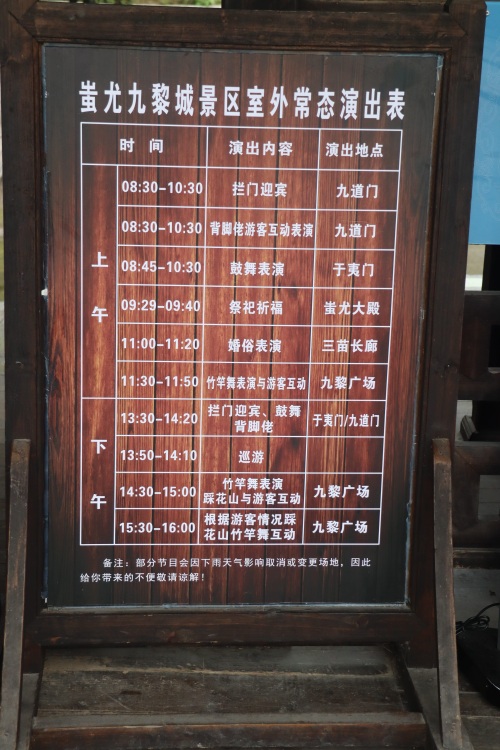 蚩尤九黎城景区室外常态演出表
时 间 演出内容 演出地点
上午
08:30-10:30 拦门迎宾 九道门
08:30-10:30 背脚佬游客互动表演 九道门
08:45-10:30 鼓舞表演 于夷门
09:29-09:40 祭祀祈福 蚩尤大殿
11:00-11:20 婚俗表演 三苗长廊
11:30-11:50 竹竿舞表演与游客互动 九黎广场
下午
13:30-14:20 拦门迎宾、鼓舞
背脚佬 于夷门/九道门
13:50-14:10 巡游
14:30-15:00 竹竿舞表演
踩花山与游客互动 九黎广场
15:30-16:00 根据游客情况踩
花山竹竿舞互动 九黎广场
备注：部分节目会因下雨天气影响取消或变更场地，因此
给你带来的不便敬请谅解！